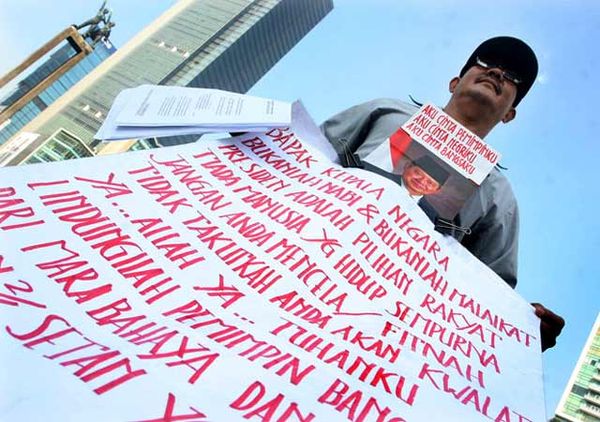 AKU CINTA PEMIMPINKU
AKU CINTA NEGERIKU
AKU CINTA BANGSAKU
BAPAK KEPALA NEGARA
BUKANLAH NABI & BUKANLAH MALAIKAT
ADALAH PILIHAN RAKYAT
TIADA MANUSIA YG HIDUP SEMPURNA
JANGAN ANDA MENCELA / FITNAH
TIDAK TAKUTKAH ANDA AKAN KWALAT
YA... ALLAH YA... TUHANKU
LINDUNGILAH PEMIMPIN BANG
DARI MARA BAHAYA DAN
SETAN